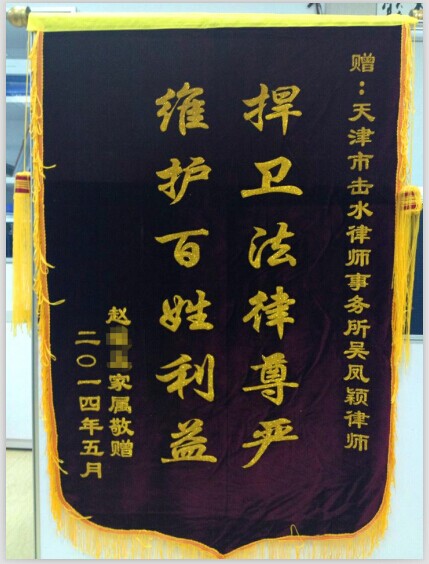 赠：天津市击水律师事务所吴凤颖律师
捍卫法律尊严
维护百姓利益
赵家属敬赠
二〇一四年五月